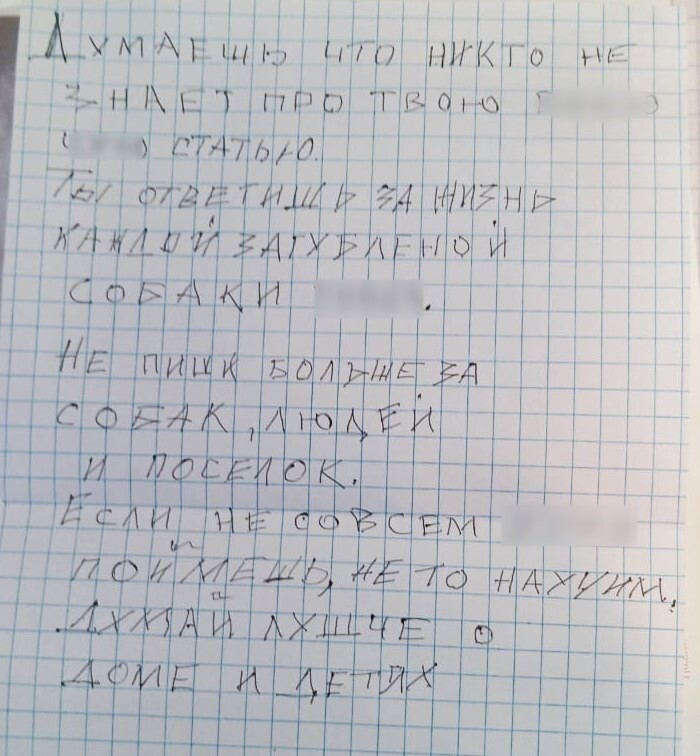 ДУМАЕШЬ ЧТО НИКТО НЕ
ЗНАЕТ ПРО ТВОЮ
СТАТЬЮ.
ТЫ ОТВЕТИШЬ ЗА ЖИЗНЬ
КАЖДОЙ ЗАГУБЛЕНОЙ
СОБАКИ .
НЕ ПИШИ БОЛЬШЕ ЗА
СОБАК, ЛЮДЕЙ
И ПОСЕЛОК.
ЕСЛИ НЕ СОВСЕМ
ПОЙМЕШЬ, НЕ ТО НАХУИМ.
ДУМАЙ ЛУШЧЕ О
ДОМЕ И ДЕТЯХ